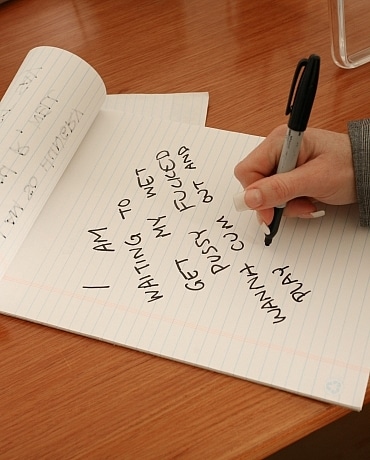 I AM
WAITING TO
GET MY WET
PUSSY FUCKED
CUM OUT AND
WANNA
PLAY